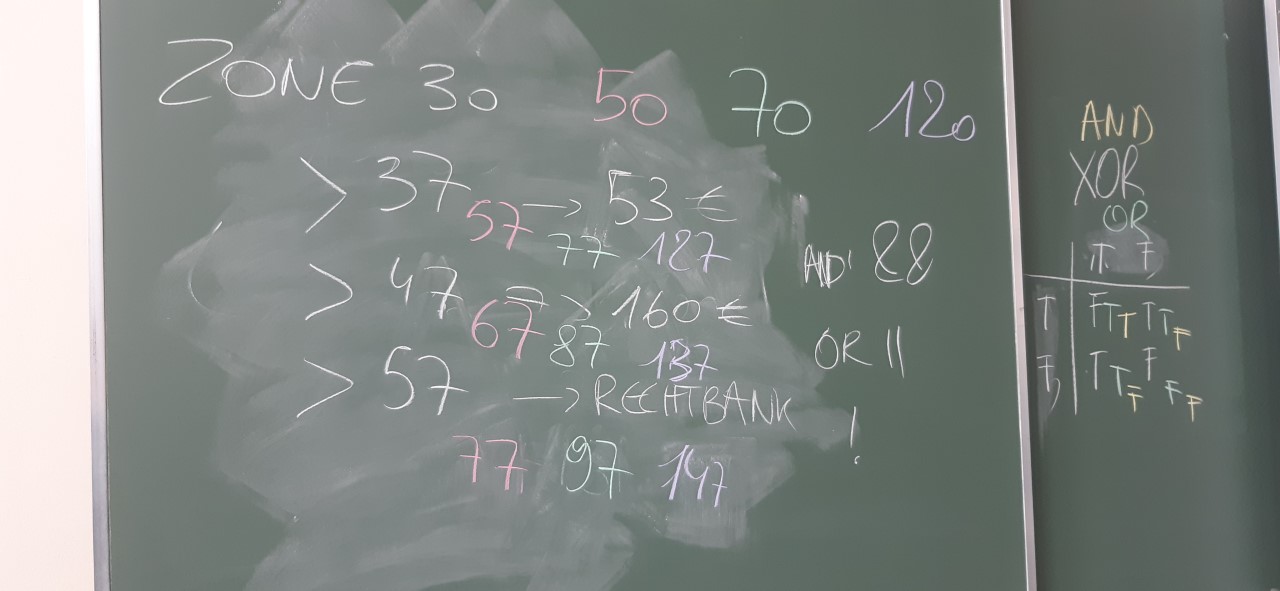 ZONE 30 50 70 120
> 37 → 53 €
57 77 127
> 47 => 160 €
67 87 137
> 57 → RECHTBANK
77 97 147
AND &&
OR ||
!
AND
XOR
OR
T F
T F T T T T F
F T T F F F F